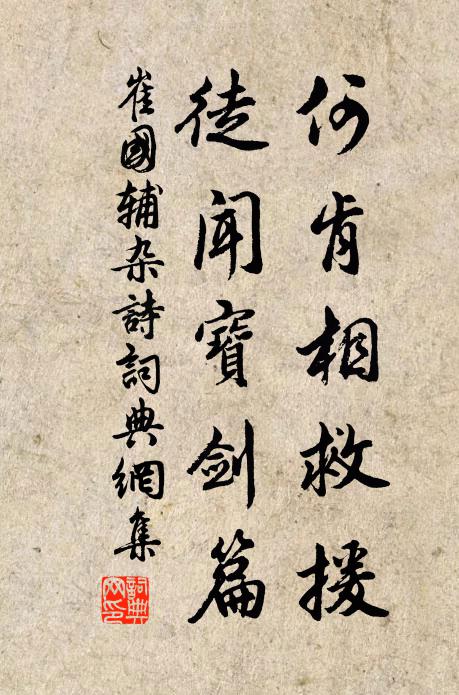 何肯相救援
徒聞寶劍篇
崔國辅杂詩詞典網集
詞典